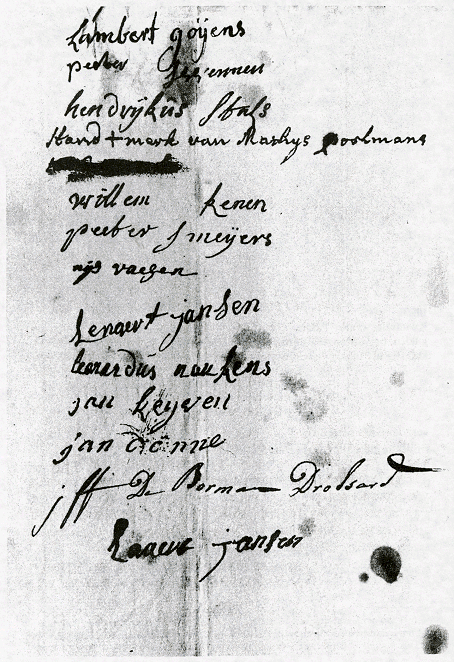 Lambert goijens
peeter Gevennen
hendrijkus Stals
Hand + merk van Mathys poelmans
willem kenen
peeter smeijers
nijs vaesen
Lenaert jansen
Leonardus noukens
jan keyven
jan
jff De Borman Drossard
Lanert jansen